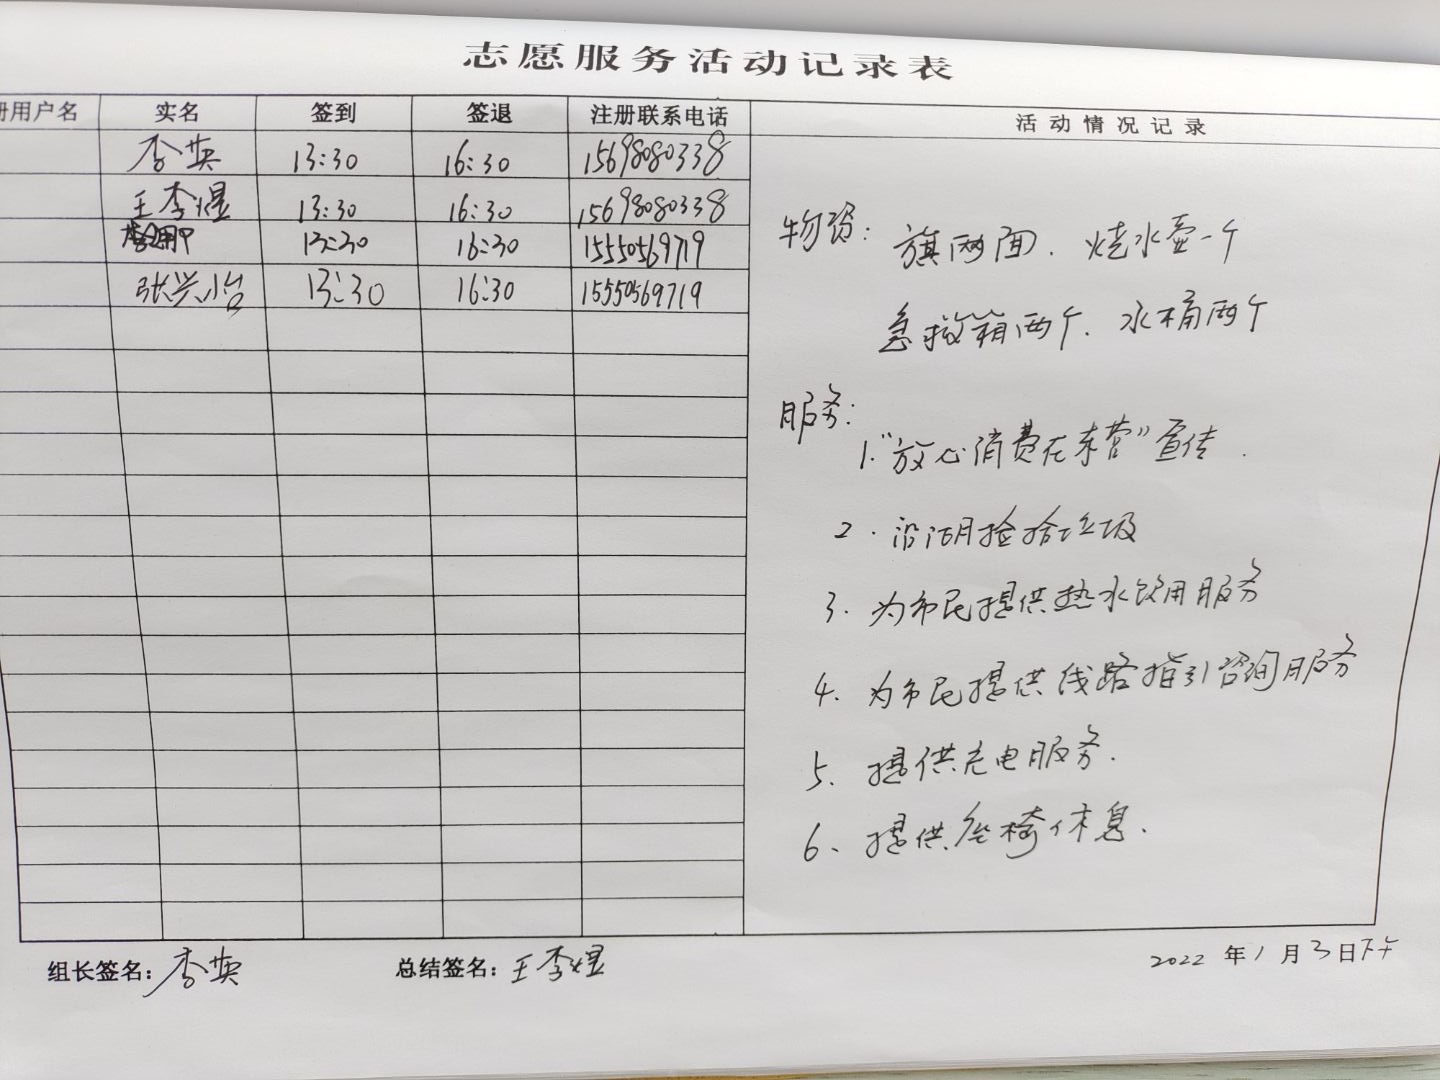 志愿服务活动记录表
册用户名 实名 签到 签退 注册联系电话 活动情况记录
李英 13:30 16:30 15698080338
王李煜 13:30 16:30 15698080338
13:30 16:30 15550569719
张兴怡 13:30 16:30 15550569719
物资: 旗两面. 烧水壶一个
急救箱两个. 水桶两个
服务:
1."放心消费在东营"宣传.
2.沿湖捡拾垃圾
3.为市民提供热水饮用服务
4.为市民提供线路指引咨询服务
5.提供充电服务.
6、提供座椅休息.
组长签名:李英 总结签名:王李煜 2022年1月3日下午